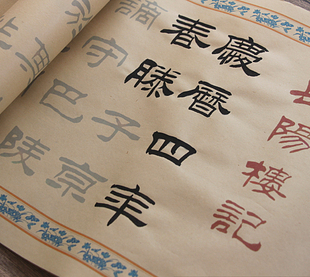 陽樓記
慶曆四年
春滕子京
謫守巴陵